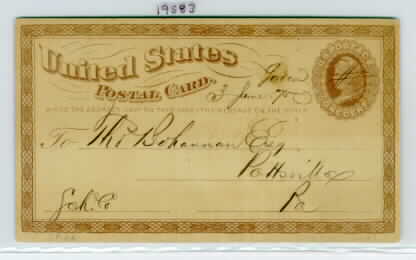 19883
United States
Postal Card.
WRITE THE ADDRESS ONLY ON THIS SIDE - THE MESSAGE ON THE OTHER
3 June
To Tho. Bohannan Esq
Pottsville
Sch. Co
Pa